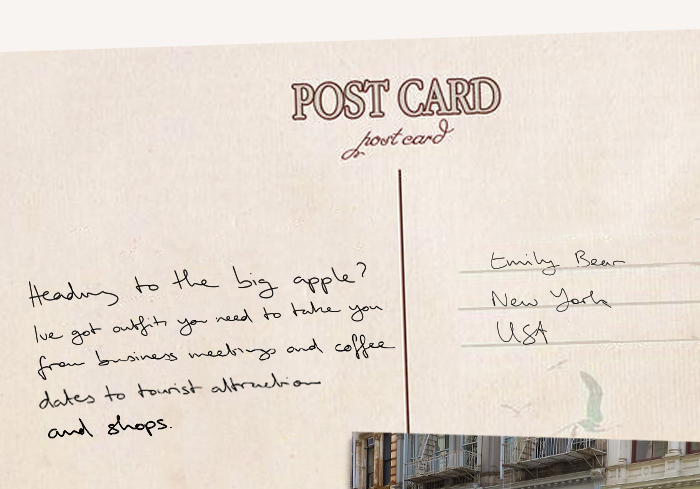 POST CARD
post card
Heading to the big apple?
Ive got outfits you need to take you
from business meetings and coffee
dates to tourist attraction
and shops.
Emily Bear
New York
USA